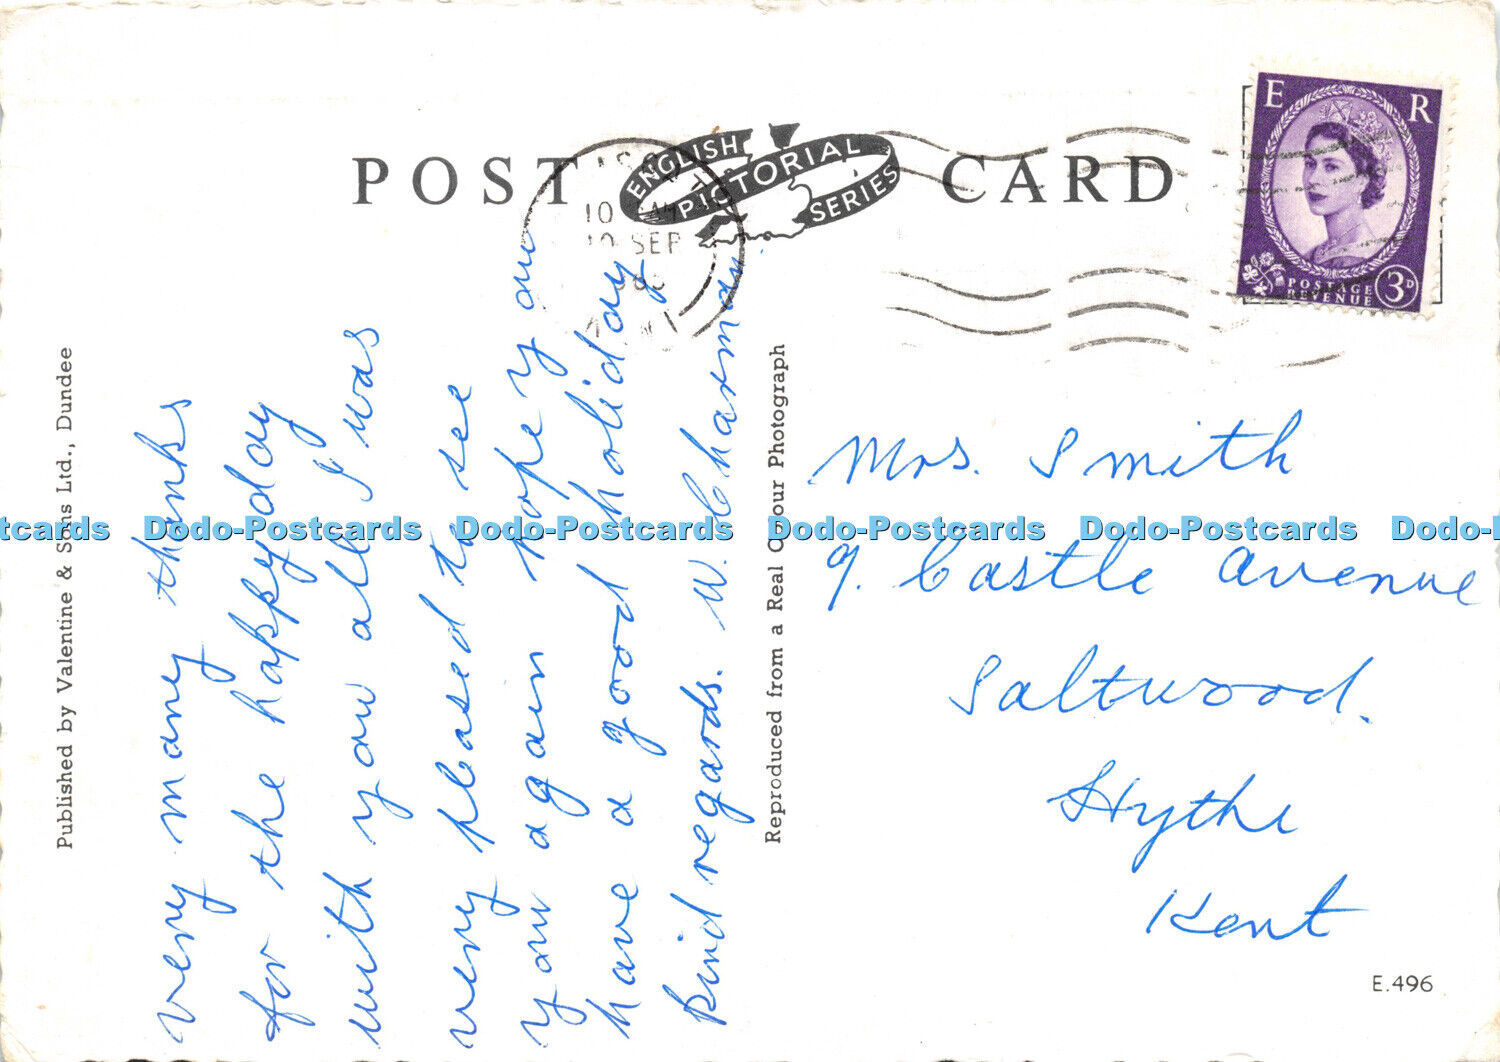 POST CARD
ENGLISH
PICTORIAL
SERIES
10 AM
10 SEP
E R
POSTAGE
REVENUE
3D
Published by Valentine & Sons Ltd., Dundee
very many thanks
for the happy day
with you all I was
very pleased to see
you again hope you
have a good holiday
kind regards. W. Charman.
Reproduced from a Real Colour Photograph
Mrs. Smith
9. Castle Avenue
Saltwood.
Hythe
Kent
E.496
Dodo-Postcards Dodo-Postcards Dodo-Postcards Dodo-Postcards Dodo-Postcards